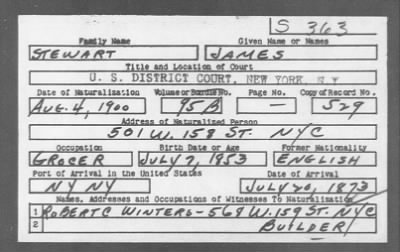 S 363
Family Name Given Name or Names
STEWART JAMES
Title and Location of Court
U. S. DISTRICT COURT, NEW YORK, N.Y
Date of Naturalization Volume or Bundle No. Page No. Copy of Record No.
AUG. 4, 1900 95B — 529
Address of Naturalized Person
501 W. 158 ST. NYC
Occupation Birth Date or Age Former Nationality
GROCER JULY 7, 1853 ENGLISH
Port of Arrival in the United States Date of Arrival
NY NY JULY 20, 1873
Names, Addresses and Occupations of Witnesses To Naturalization
1 ROBERT C WINTERS - 568 W. 159 ST. NYC
2 BUILDER